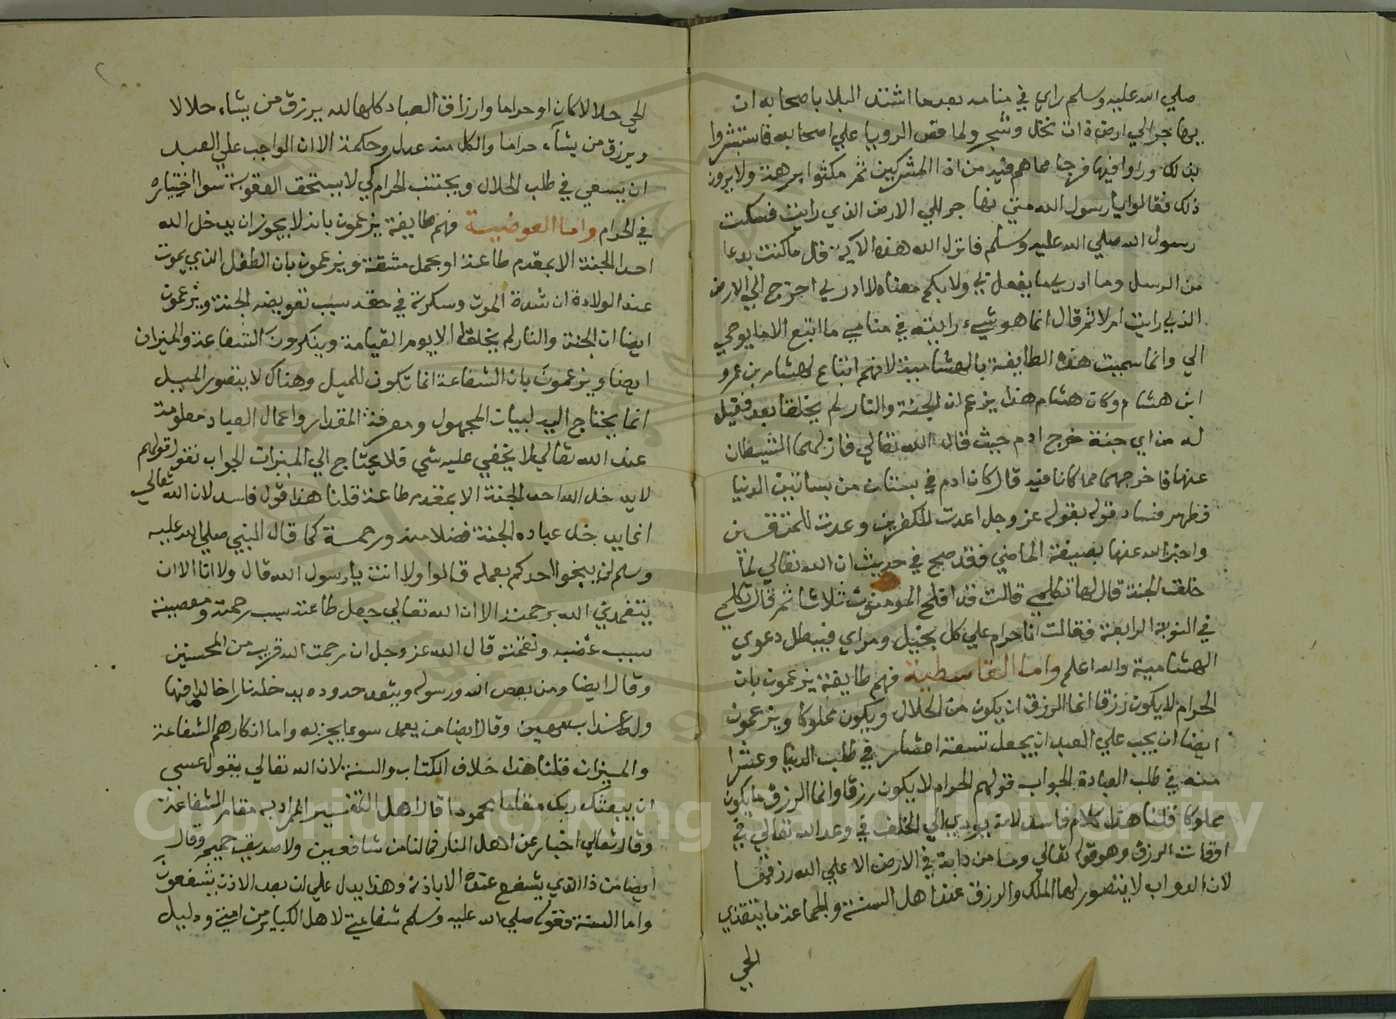 صلي الله عليه وسلم راي في منامه بعدما اشتد البلا باصحابه ان
يهاجر الي ارض ذات نخل وشجر ولما قص الرويا علي اصحابه فاستبشروا
بذلك وراوا فيها فرجا مماهم فيه من اذا المشركين ثم مكثوا برهة ولا يرون
ذلك فقالوا يا رسول الله متي نهاجر الي الارض الذي رايت فسكت
رسول الله صلي الله عليه وسلم فانزل الله هذه الاية قل ماكنت بدعا
من الرسل وما ادري ما يفعل بي ولا بكم معناه لا ادري اخرج الي الارض
الذي رايت ام لا ثم قال انما هو شيء رايته في منامي ما اتبع الا ما يوحي
الي وانما سميت هذه الطايفة بالهشامية لانهم اتباع لهشام بن عمرو
ابن هشام وكان هشام هذا يزعم ان الجنة والنار لم يخلقا بعد فقيل
له من اي جنة خرج ادم حيث قال الله تعالي فازلهما الشيطان
عنها فاخرجهما مما كانا فيه قال كان ادم في بستان من بساتين الدنيا
فظهر فساد قوله بقوله عز وجل اعدت للكفرين وعدت للمتقين
واخبر الله عنها بصيغة الماضي فقد صح في حديث ان الله تعالي لما
خلق الجنة قال لها تكلمي قالت قد افلح المومنون ثلاثا ثم قال تكلمي
في النوبة الرابعة فقالت انا حرام علي كل بخيل ومراي فيبطل دعوي
الهشامية والله اعلم واما القاسطية فهم طايفة يزعمون بان
الحرام لا يكون رزقا انما الرزق ان يكون من الحلال ويكون مملوكا ويزعمون
ايضا ان يجب علي العبد ان يجعل تسعة اعشار في طلب الدنيا وعشرا
منه في طلب العبادة الجواب قولهم الحرام لا يكون رزقا وانما الرزق ما يكون
مملوكا قلنا هذا كلام فاسد لانه يودي الي الخلف في وعد الله تعالي في
اوقات الرزق وهو قوله تعالي وما من دابة في الارض الا علي الله رزقها
لان الدواب لا يتصور لها الملك والرزق عند اهل السنة والجماعة ما يتغذي
الحي
الحي حلالا كان او حراما وارزاق العباد كلها لله يرزق من يشاء حلالا
ويرزق من يشاء حراما والكل منه عدل وحكمة الا ان الواجب علي العبد
ان يسعي في طلب الحلال ويجتنب الحرام لكي لا يستحق العقوبة سوا اختياره
في الحرام واما العوضية فهم طايفة يزعمون بانه لا يجوز ان يدخل الله
احدا الجنة الا بمقدم طاعة او بحمل مشقة ويزعمون بان الطفل الذي يموت
عند الولادة ان شدة الموت وسكرته في حقه سبب تعويضه الجنة ويزعمون
ايضا ان الجنة والنار لم يخلقا الا يوم القيامة وينكرون الشفاعة والميزان
ايضا ويزعمون بان الشفاعة انما تكون للميل وهناك لا يتصور الميل
انما يحتاج اليه لبيان المجهول ومعرفة المقدار واعمال العباد معلومة
عند الله تعالي لا يخفي عليه شي فلا يحتاج الي الميزان الجواب نقول قولهم
لا يدخل الله احد الجنة الا بمقدم طاعة قلنا هذا قول فاسد لان الله تعالي
انما يدخل عباده الجنة فضلا منه ورحمة كما قال النبي صلي الله عليه
وسلم لن ينجو احدكم بعمله قالوا ولا انت يا رسول الله قال ولا انا الا ان
يتغمدني الله برحمته الا ان الله تعالي جعل طاعة سبب رحمته ومعصيته
سبب غضبه ونقمته قال الله عز وجل ان رحمت الله قريب من المحسنين
وقال ايضا ومن يعص الله ورسوله ويتعد حدوده يدخله نارا خالدا فيها
وله عذاب مهين وقال ايضا من يعمل سوءا يجز به واما انكارهم الشفاعة
والميزان قلنا هذا خلاف الكتاب والسنة لان الله تعالي يقول عسي
ان يبعثك ربك مقاما محمودا قال اهل التفسير المراد به مقام الشفاعة
وقال تعالي اخبارا عن اهل النار فما لنا من شافعين ولا صديق حميم وقال
ايضا من ذا الذي يشفع عنده الا باذنه وهذا يدل علي ان بعد الاذن يشفعون
واما السنة فقوله صلي الله عليه وسلم شفاعتي لاهل الكباير من امتي ودليل
Copyright © King Saud University